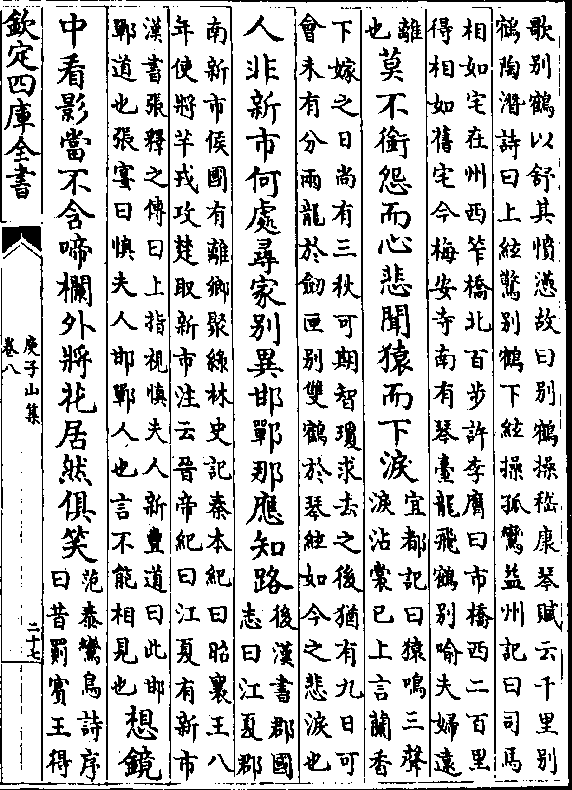 歌别鶴以舒其憤懣故曰别鶴操嵇康琴賦云千里别
鶴陶潛詩曰上絃驚别鶴下絃操孤鸞益州記曰司馬
相如宅在州西笮橋北百步許李膺曰市橋西二百里
得相如舊宅今梅安寺南有琴臺龍飛鶴别喻夫婦遠
離
也
莫不銜怨而心悲聞猿而下淚
宜都記曰猿鳴三聲
淚沾裳已上言蘭香
下嫁之日尚有三秋可期智瓊求去之後猶有九日可
會未有分兩龍於劒匣别雙鶴於琴絃如今之悲淚也
人非新市何處尋家别異邯鄲那應知路
後漢書郡國
志曰江夏郡
南新市侯國有離鄉聚綠林史記秦本紀曰昭襄王八
年使將羋戎攻楚取新市注云晉帝紀曰江夏有新市
漢書張釋之傳曰上指視慎夫人新豐道曰此邯
鄲道也張宴曰慎夫人邯鄲人也言不能相見也
想鏡
中看影當不含啼欄外將花居然俱笑
范泰鸞鳥詩序
曰昔罽賓王得
欽定四庫全書
庾子山集
卷八
二十七